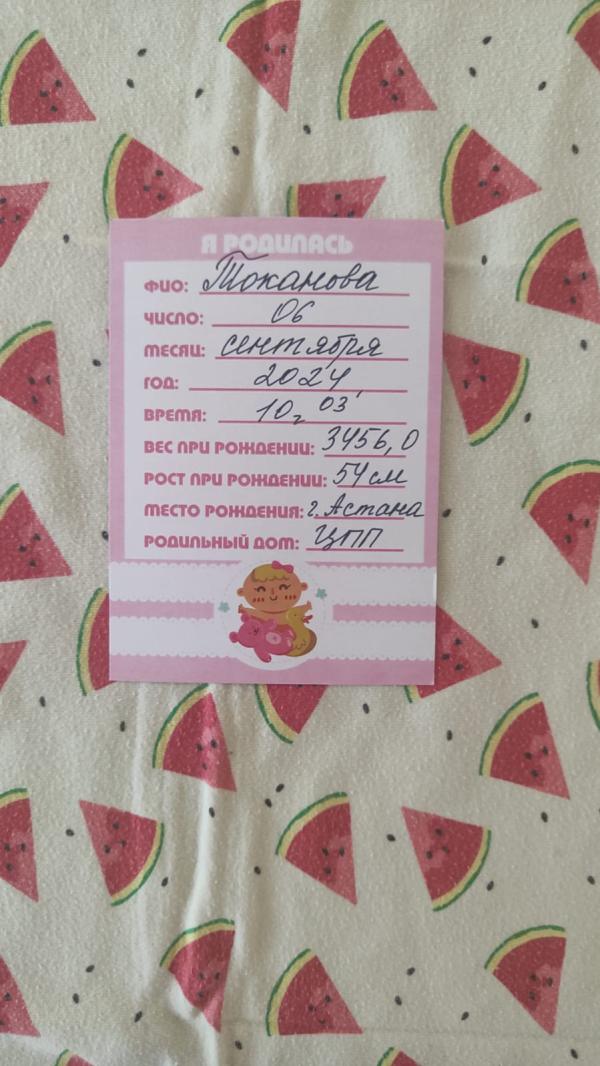 Я РОДИЛАСЬ
ФИО: Токанова
ЧИСЛО: 06
МЕСЯЦ: сентября
ГОД: 2024
ВРЕМЯ: 10 03
ВЕС ПРИ РОЖДЕНИИ: 3456,0
РОСТ ПРИ РОЖДЕНИИ: 54 см
МЕСТО РОЖДЕНИЯ: г. Астана
РОДИЛЬНЫЙ ДОМ: ЦПП